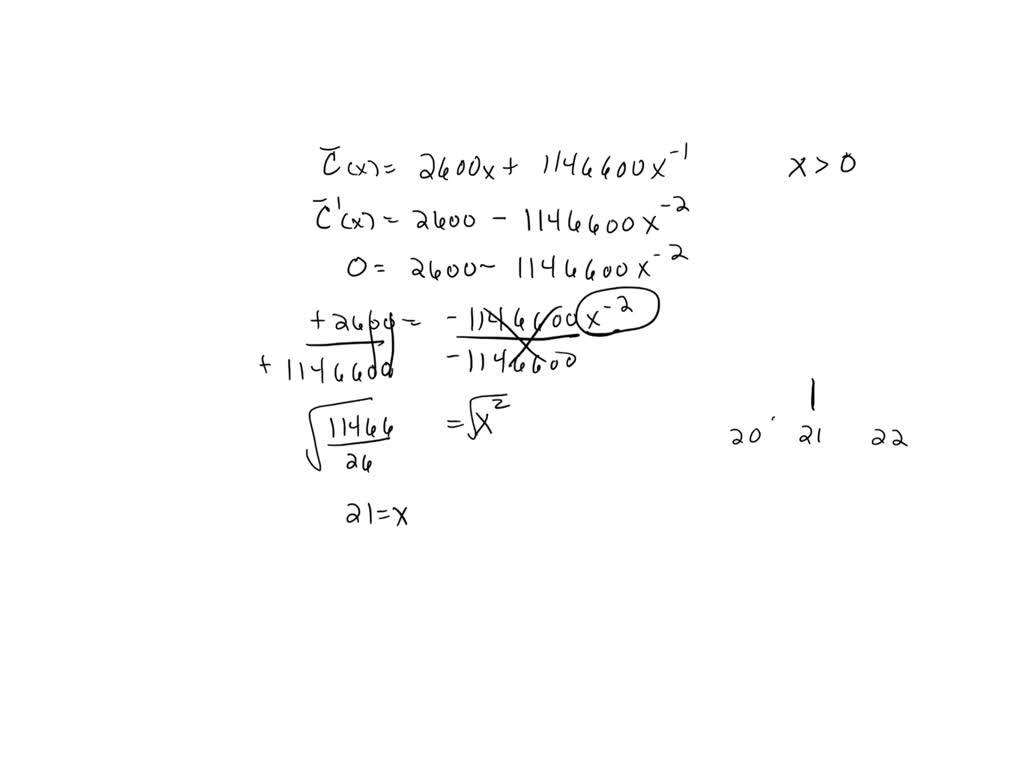 C̄(x) = 2600x + 1146600x⁻¹ x > 0
C̄'(x) = 2600 - 1146600x⁻²
0 = 2600 - 1146600x⁻²
+2600 = -1146600x⁻²
+1146600 -1146600
√(11466/26) = √x²
20 21 22
21 = x